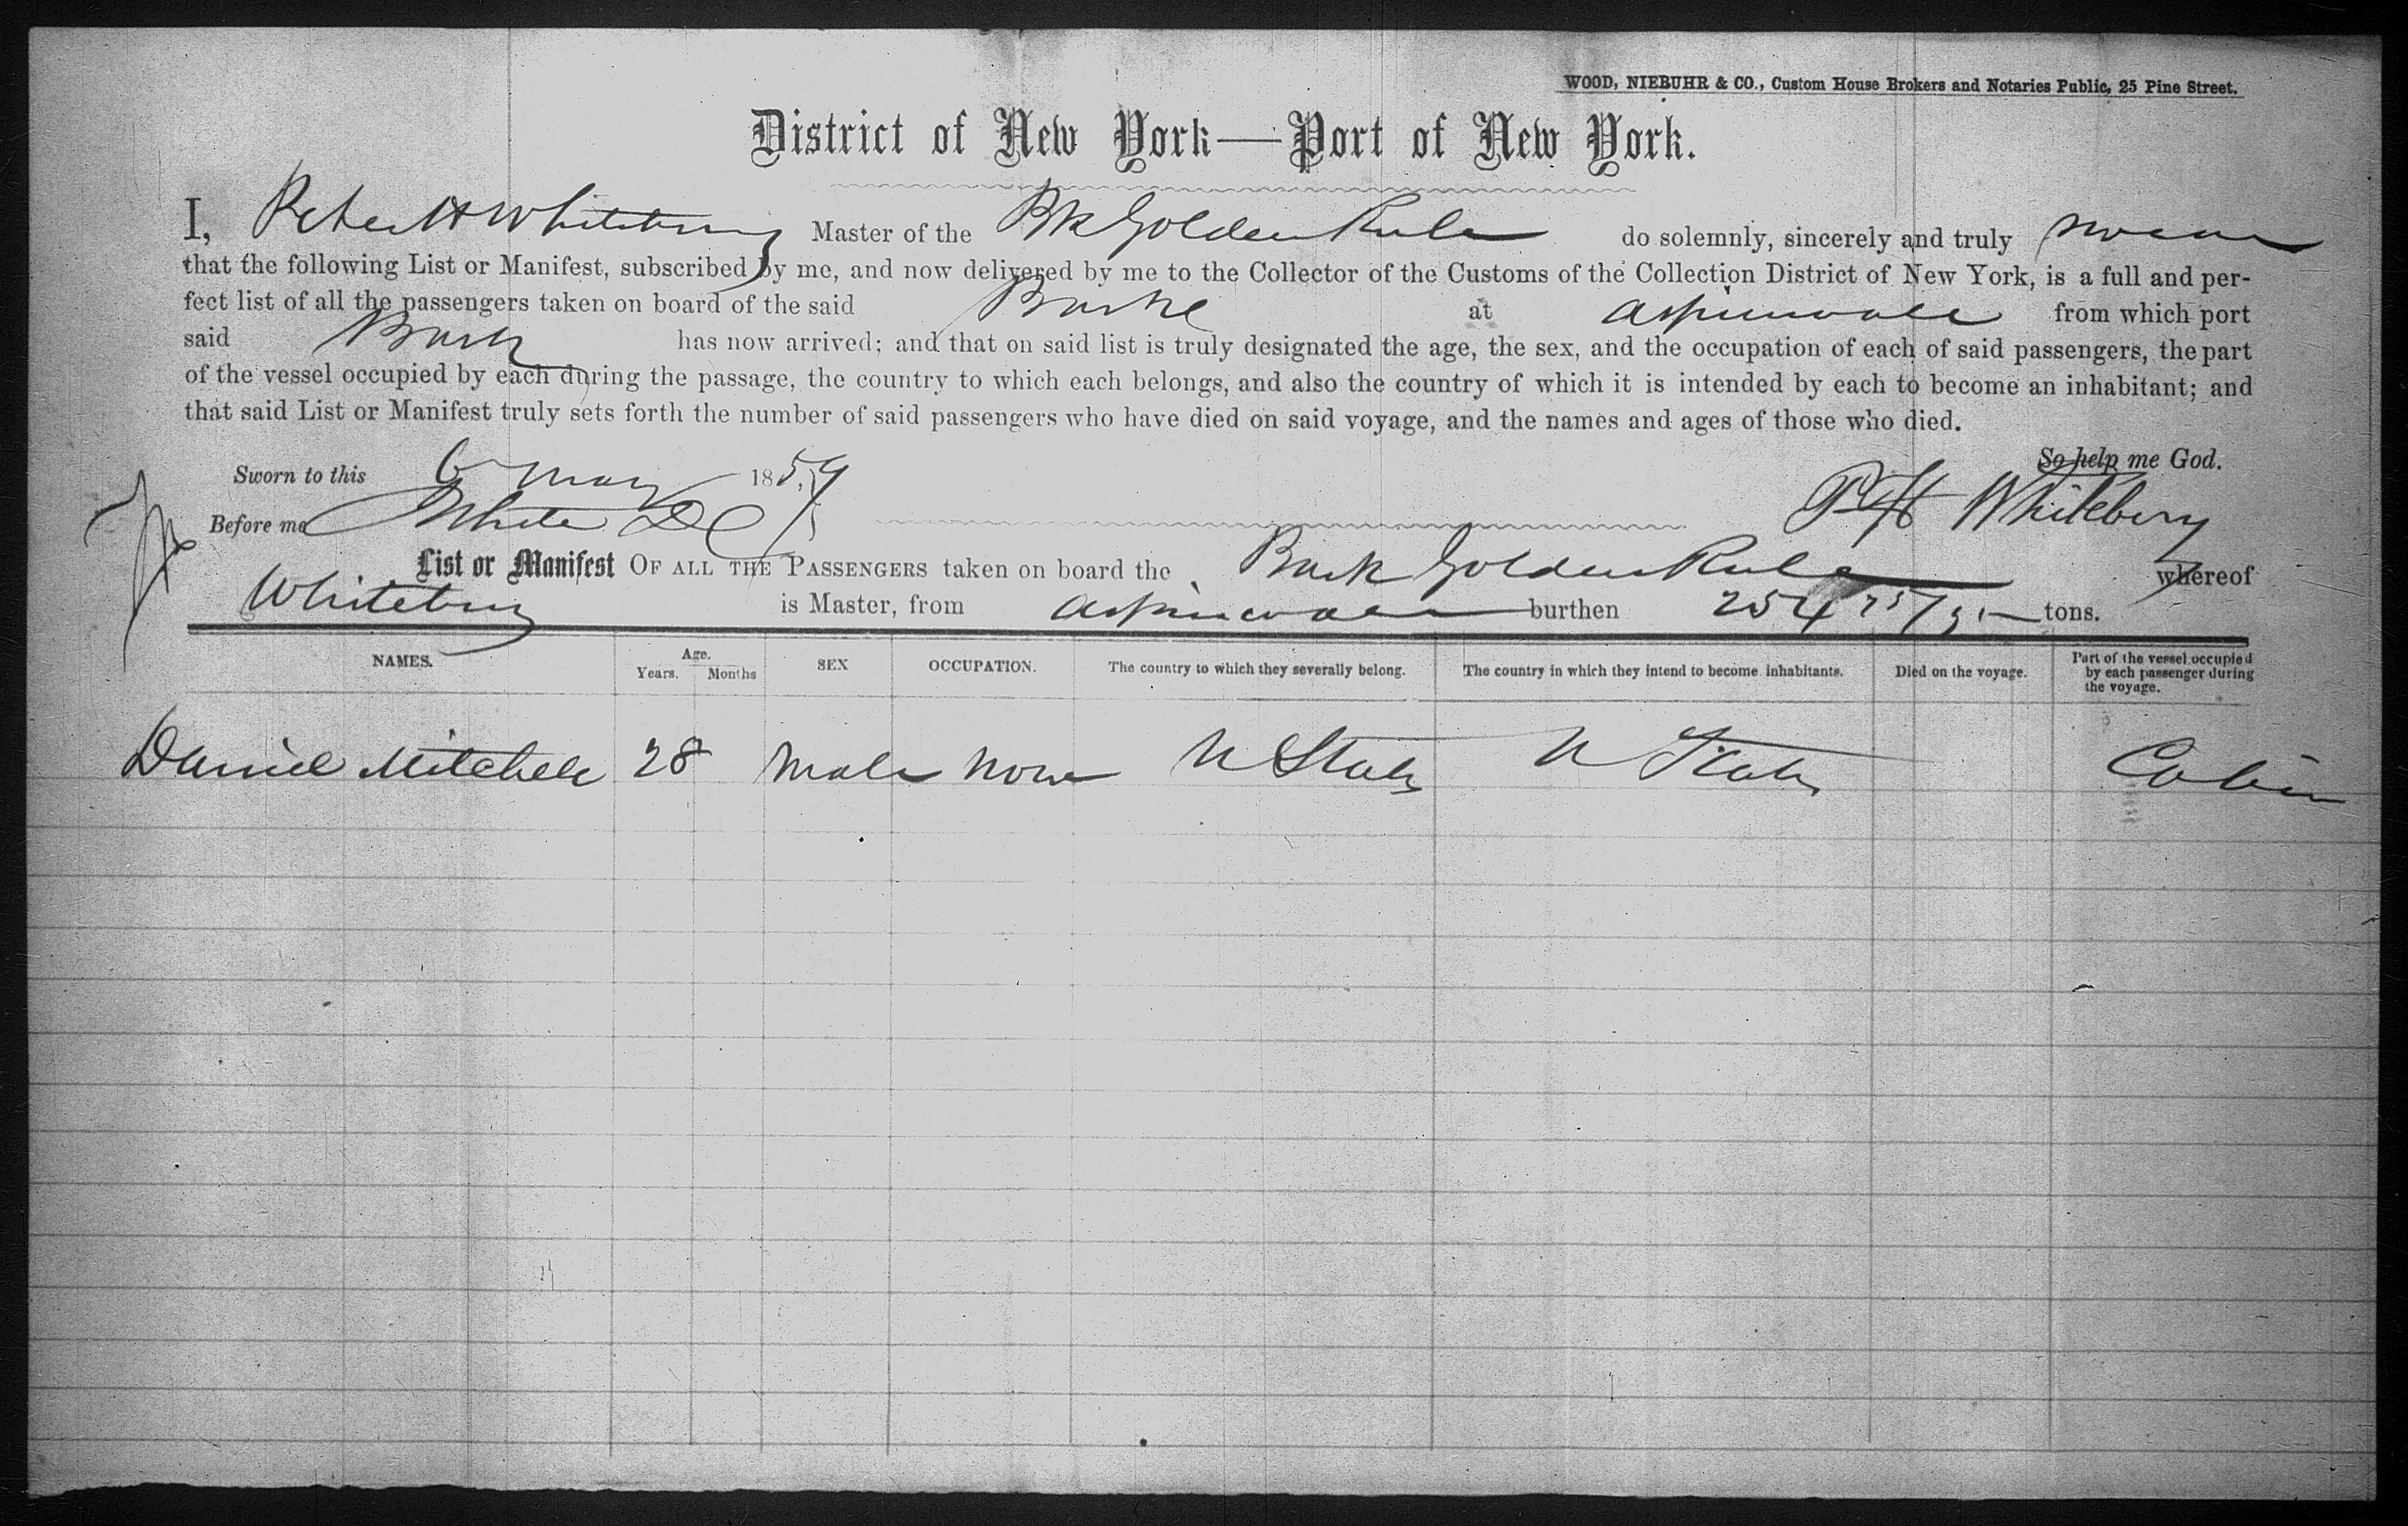 WOOD, NIEBUHR & CO., Custom House Brokers and Notaries Public, 25 Pine Street.
District of New York—Port of New York.
I, Peter H Whitebury Master of the Bk Golden Rule do solemnly, sincerely and truly swear
that the following List or Manifest, subscribed by me, and now delivered by me to the Collector of the Customs of the Collection District of New York, is a full and per-
fect list of all the passengers taken on board of the said Barke at Aspinwall from which port
said Bark has now arrived; and that on said list is truly designated the age, the sex, and the occupation of each of said passengers, the part
of the vessel occupied by each during the passage, the country to which each belongs, and also the country of which it is intended by each to become an inhabitant; and
that said List or Manifest truly sets forth the number of said passengers who have died on said voyage, and the names and ages of those who died.
So help me God.
Sworn to this 6 May 1859
P H Whitebury
Before me White DC
List or Manifest OF ALL THE PASSENGERS taken on board the Bark Golden Rule whereof
Whitebury is Master, from Aspinwall burthen 254 tons.
NAMES. Age. Years. Months SEX OCCUPATION. The country to which they severally belong. The country in which they intend to become inhabitants. Died on the voyage. Part of the vessel occupied by each passenger during the voyage.
Daniel Mitchell 28 Male None U States U States Cabin